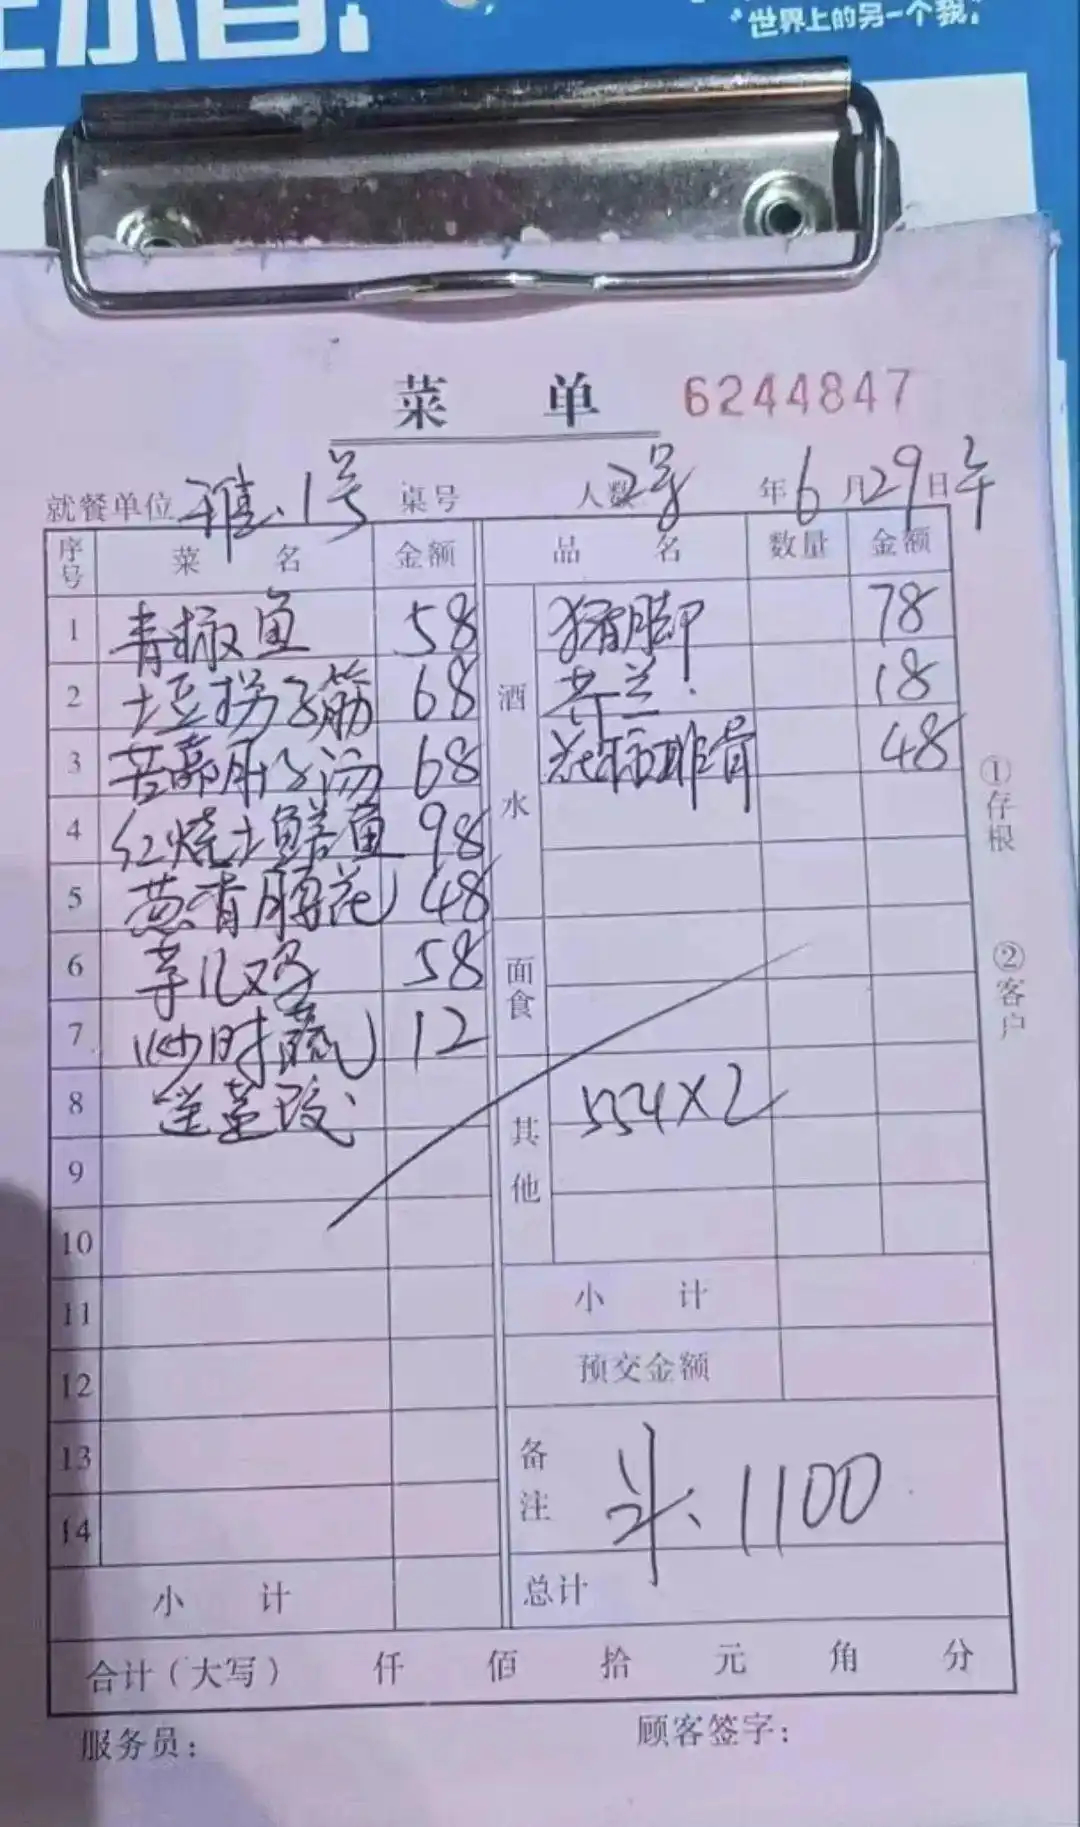 世界上的另一个我
菜 单 6244847
就餐单位 雅.1号 桌号 人数 2号 年6月29日午
序号 菜 名 金额 品 名 数量 金额
1 青椒鱼 58 酒水 猪脚 78
2 土豆拐子筋 68 芥兰. 18
3 68 排骨 48
4 红烧土 鱼 98
5 葱香 花 48
6 芋儿鸡 58 面食
7 炒时蔬 12
8 其他 554X2
9
10
11 小 计
12 预交金额
13 备注 斗、1100
14
小 计 总计
合计(大写) 仟 佰 拾 元 角 分
服务员: 顾客签字:
①存根
②客户